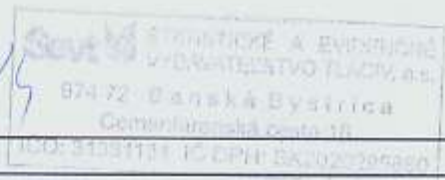 Ševt ŠTATISTICKÉ A EVIDENČNÉ
VYDAVATEĽSTVO TLAČÍV, a.s.
974 72 Banská Bystrica
Cementárenská cesta 16
IČO: 31331131 IČ DPH: